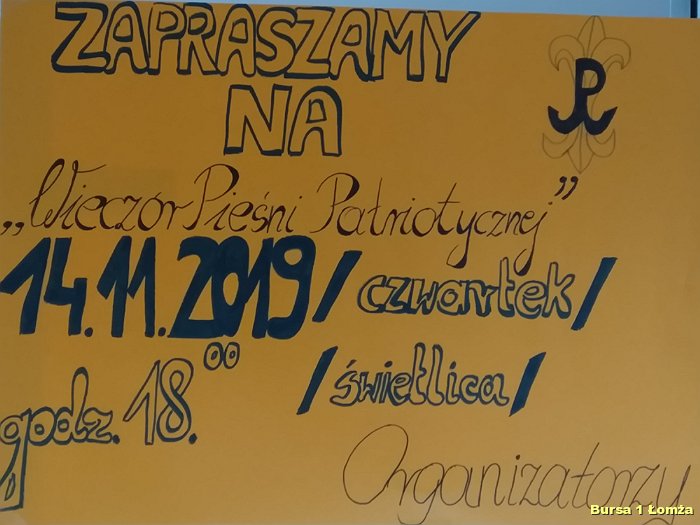 ZAPRASZAMY
NA
„Wieczór Pieśni Patriotycznej”
14.11.2019/czwartek/
godz. 18.⁰⁰ /świetlica/
Organizatorzy
Bursa 1 Łomża